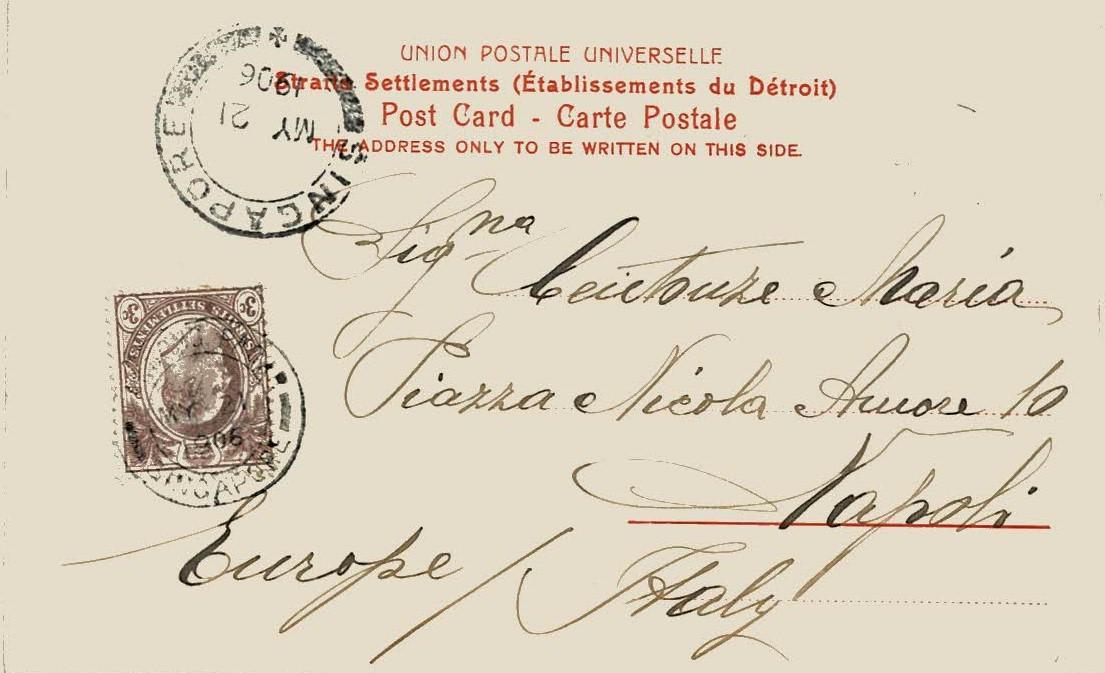 UNION POSTALE UNIVERSELLE
Straits Settlements (Établissements du Détroit)
Post Card - Carte Postale
THE ADDRESS ONLY TO BE WRITTEN ON THIS SIDE.
SINGAPORE
MY 21
1906
Signa Maria
Piazza Nicola Amore 10
Napoli
Europe / Italy
3c 3c
STRAITS SETTLEMENTS
SINGAPORE
MY 21
1906